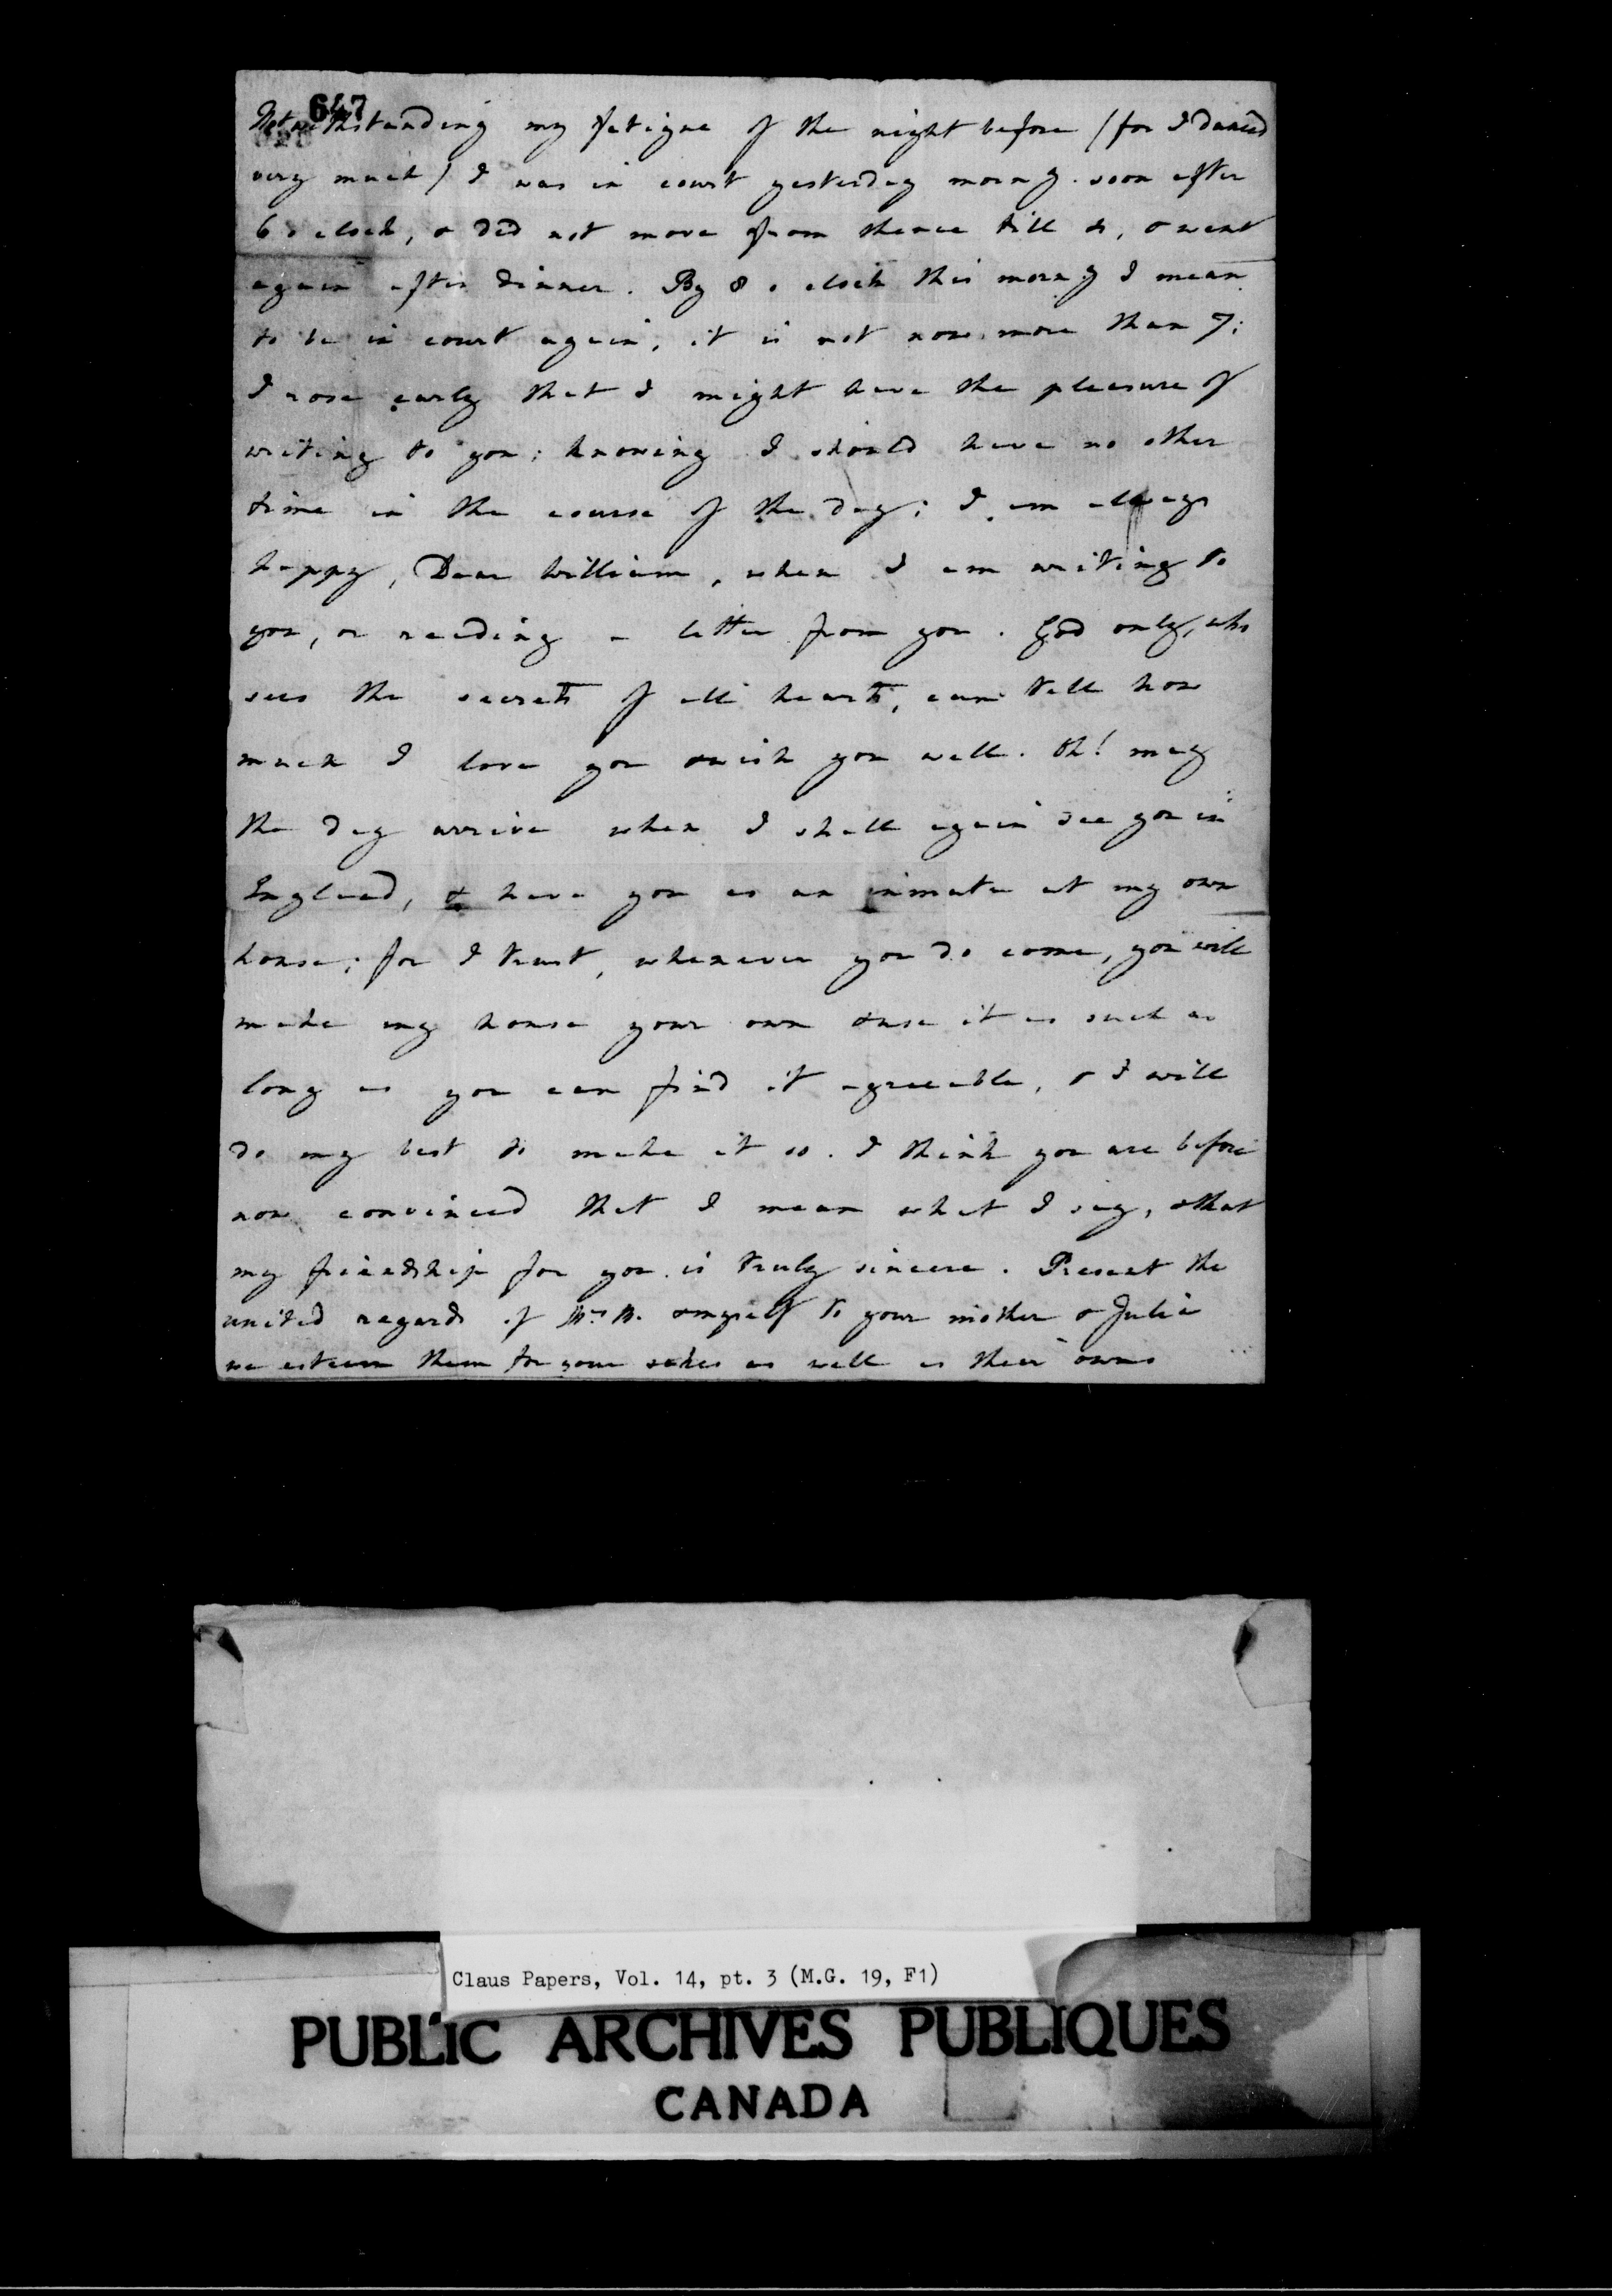 647
Notwithstanding my fatigue of the night before (for I danced
very much) I was in court yesterday morng. soon after
6 o clock, & did not move from thence till 4, & went
again after dinner. By 8 o clock this morng I mean
to be in court again, it is not now more than 7;
I rose early that I might have the pleasure of
writing to you; knowing I should have no other
time in the course of the day; I am always
happy, Dear William, when I am writing to
you, or reading a letter from you. God only, who
sees the secrets of all hearts, can tell how
much I love you & wish you well. Oh! may
the day arrive when I shall again see you in
England, & have you as an inmate at my own
house; for I trust, whenever you do come, you will
make my house your own & use it as such as
long as you can find it agreeable, & I will
do my best to make it so. I think you are before
now convinced that I mean what I say, & that
my friendship for you is truly sincere. Present the
united regards of & myself to your mother & Julia
we esteem them for your sakes as well as their owns
Claus Papers, Vol. 14, pt. 3 (M.G. 19, F1)
PUBLIC ARCHIVES PUBLIQUES
CANADA